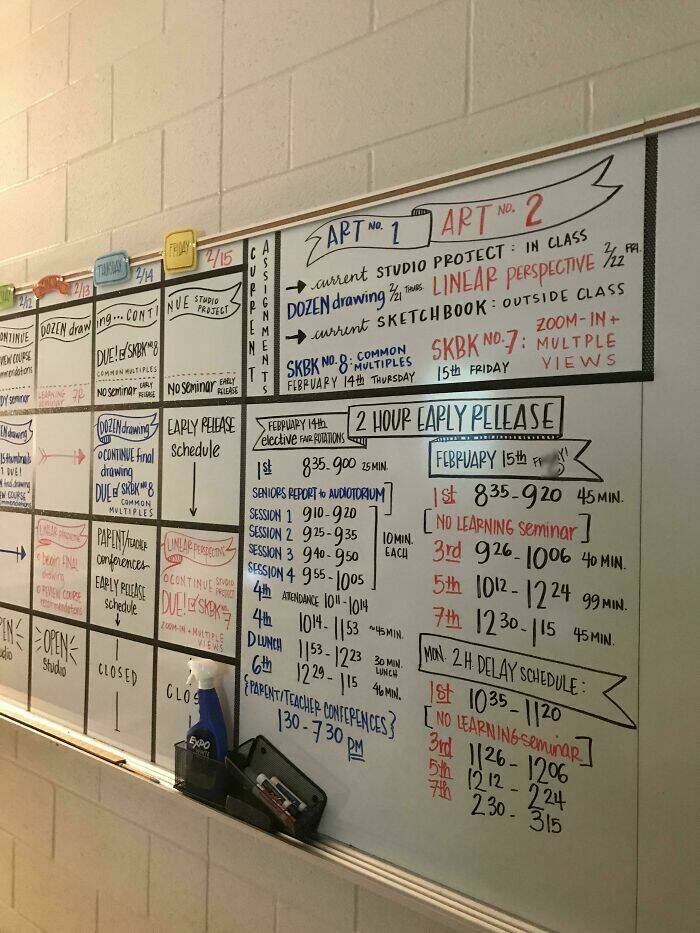 2/12
2/13
THURSDAY
2/14
FRIDAY
2/15
CURRENT
ASSIGNMENTS
DOZEN drawing... CONTINUE STUDIO PROJECT
DUE! SKBK Nº 8
COMMON MULTIPLES
NO seminar EARLY RELEASE
NO seminar EARLY RELEASE
LEARNING
DOZEN drawing
CONTINUE final
drawing
DUE SKBK Nº 8
COMMON
MULTIPLES
EARLY RELEASE
schedule
LINEAR PERSPECTIVE
begin FINAL
drawing
REVIEW COURSE
PARENT/TEACHER
conferences
EARLY RELEASE
schedule
LINEAR PERSPECTIVE
CONTINUE STUDIO
PROJECT
DUE! SKBK Nº 7
ZOOM-IN + MULTIPLE
VIEWS
OPEN
Studio
CLOSED
EXPO
ART NO. 1
ART NO. 2
→ current STUDIO PROJECT: IN CLASS
DOZEN drawing 2/21 THURS.
LINEAR PERSPECTIVE 2/22 FRI.
→ current SKETCHBOOK: OUTSIDE CLASS
SKBK NO. 8: COMMON MULTIPLES
FEBRUARY 14th THURSDAY
SKBK NO. 7: ZOOM-IN + MULTPLE VIEWS
15th FRIDAY
2 HOUR EARLY RELEASE
FEBRUARY 14th
elective FAIR ROTATIONS
1st 835-900 25 MIN.
SENIORS REPORT to AUDIOTORIUM]
SESSION 1 910-920
SESSION 2 925-935
SESSION 3 940-950
SESSION 4 955-1005
10 MIN. EACH
4th ATENDANCE 1011-1014
4th 1014-1153 ~45 MIN.
D LUNCH 1153-1223 30 MIN. LUNCH
6th 1229-115 46 MIN.
{PARENT/TEACHER CONFERENCES}
130-730 PM
FEBRUARY 15th
1st 835-920 45 MIN.
[NO LEARNING seminar]
3rd 926-1006 40 MIN.
5th 1012-1224 99 MIN.
7th 1230-115 45 MIN.
MON. 2 H. DELAY SCHEDULE:
1st 1035-1120
[NO LEARNING seminar]
3rd 1126-1206
5th 1212-224
7th 230-315